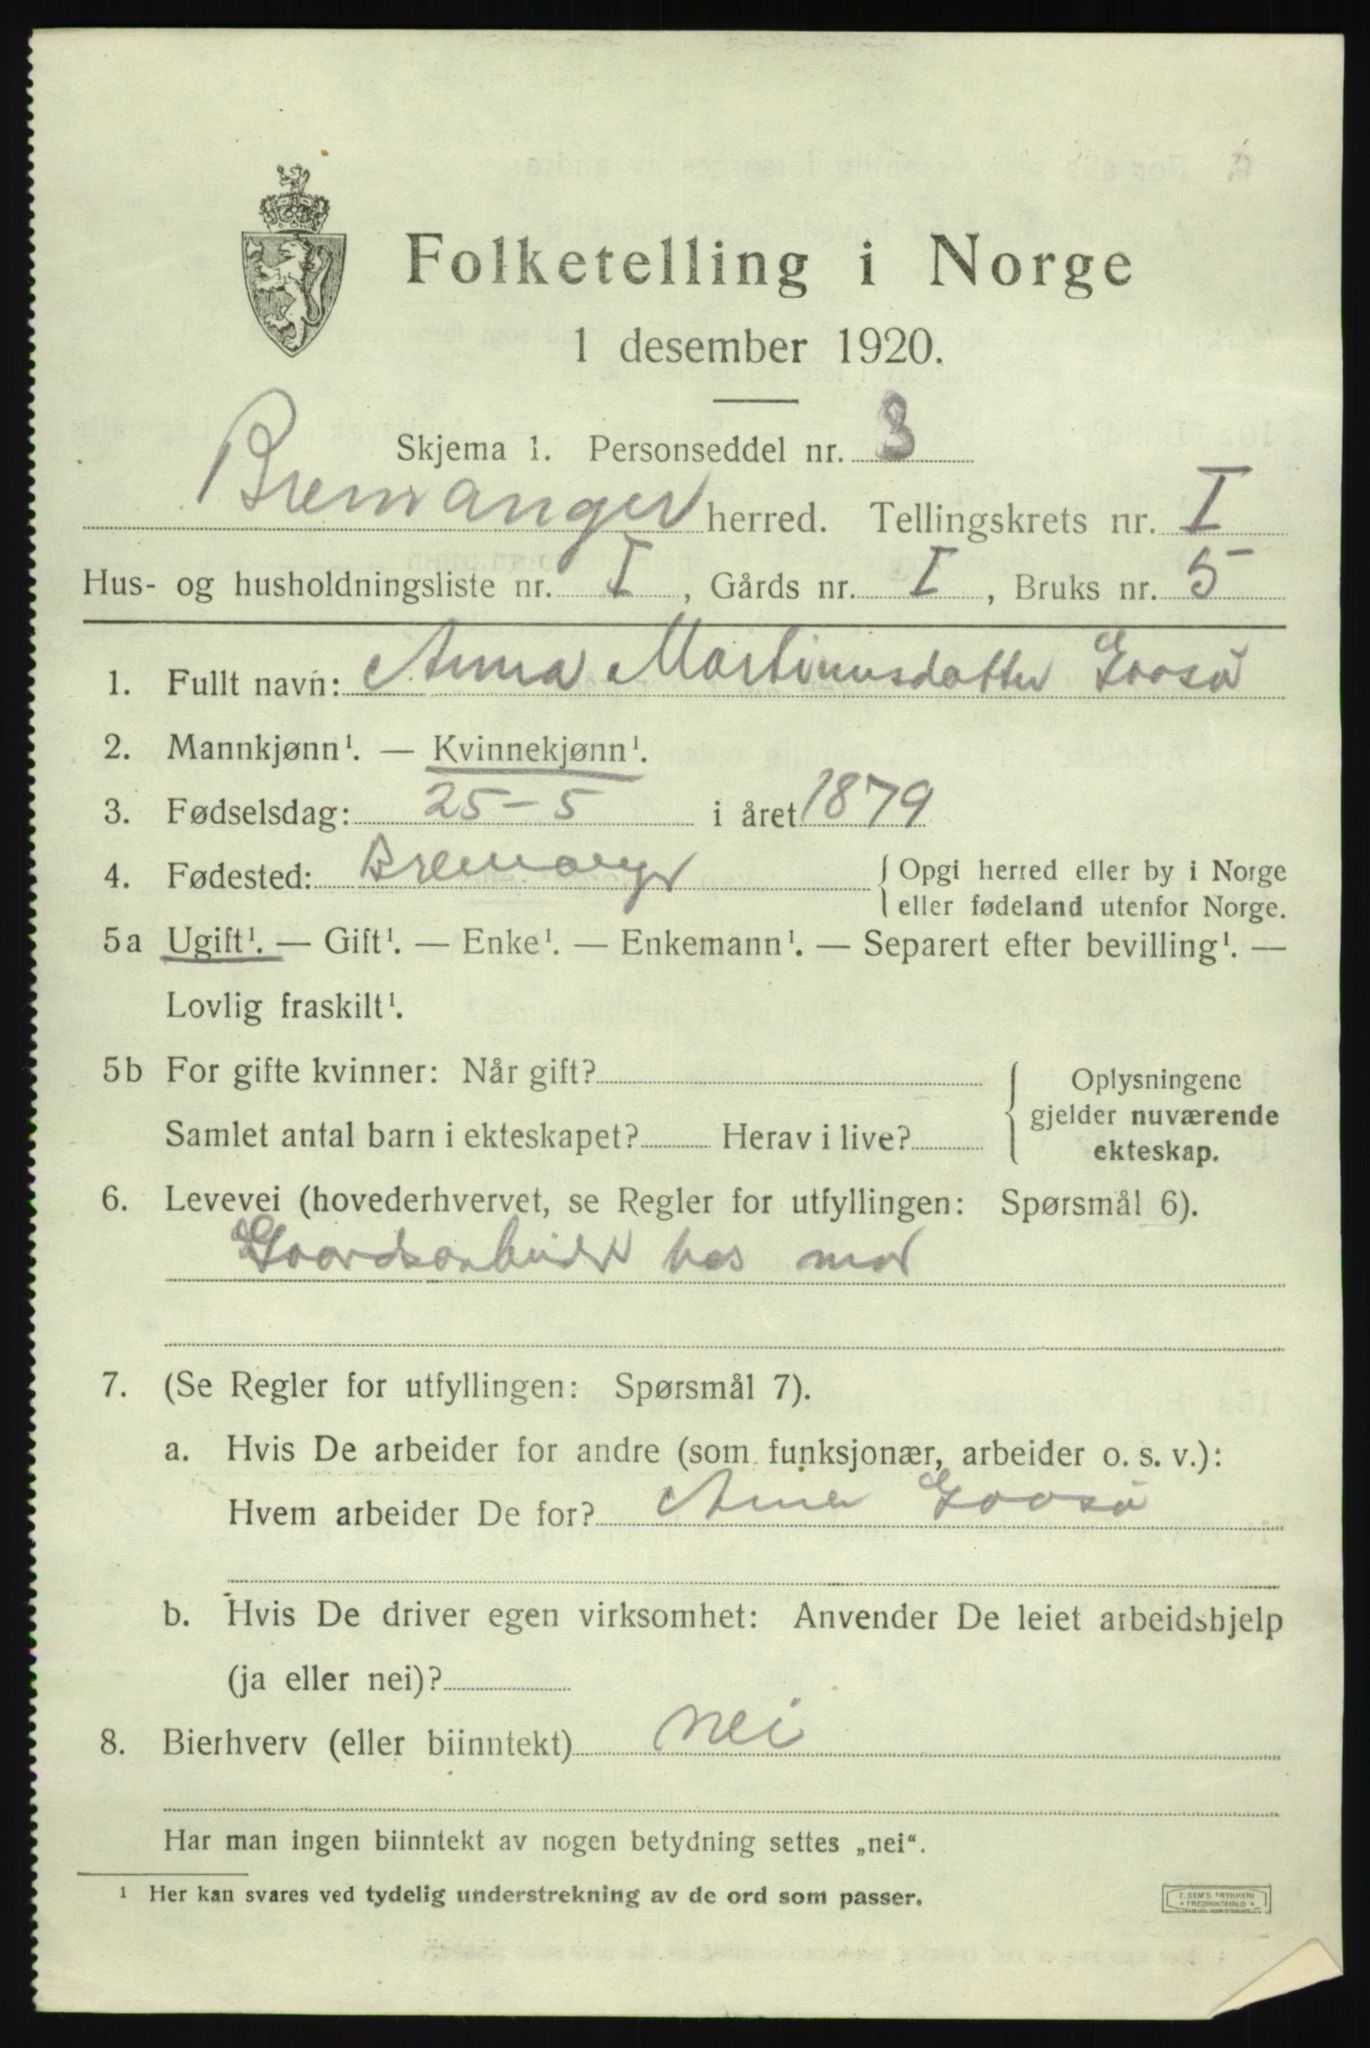 Folketelling i Norge
1 desember 1920.
Skjema 1. Personseddel nr. 3
Bremanger herred. Tellingskrets nr. I
Hus- og husholdningsliste nr. I, Gårds nr. I, Bruks nr. 5
1. Fullt navn: Anna Martinusdatter Goosö
2. Mannkjønn¹. — Kvinnekjønn¹.
3. Fødselsdag: 25-5 i året 1879
4. Fødested: Bremanger { Opgi herred eller by i Norge
eller fødeland utenfor Norge.
5a Ugift¹. — Gift¹. — Enke¹. — Enkemann¹. — Separert efter bevilling¹. —
Lovlig fraskilt¹.
5b For gifte kvinner: Når gift?
Samlet antal barn i ekteskapet? Herav i live?
Oplysningene
gjelder nuværende
ekteskap.
6. Levevei (hovederhvervet, se Regler for utfyllingen: Spørsmål 6).
Gaardsarbeider hos mor
7. (Se Regler for utfyllingen: Spørsmål 7).
a. Hvis De arbeider for andre (som funksjonær, arbeider o. s. v.):
Hvem arbeider De for? Anna Goosö
b. Hvis De driver egen virksomhet: Anvender De leiet arbeidshjelp
(ja eller nei)?
8. Bierhverv (eller biinntekt) nei
Har man ingen biinntekt av nogen betydning settes „nei“.
¹ Her kan svares ved tydelig understrekning av de ord som passer.
E. SEM'S TRYKKERI
FREDRIKSHALD